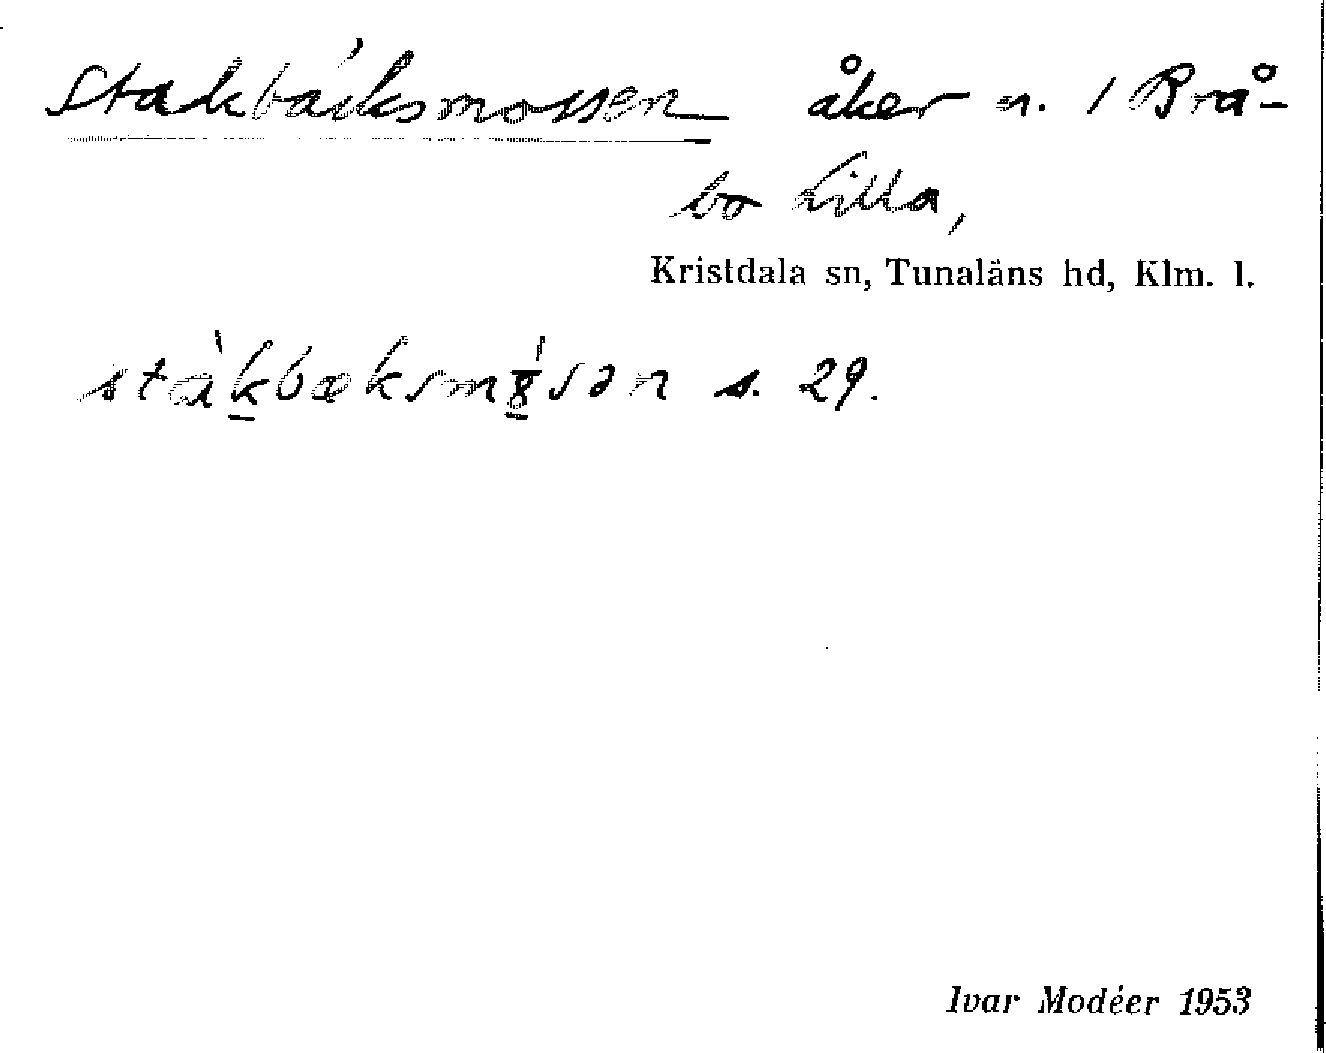 Stakbäcksmossen åker n. 1 Brå-
bo Lilla,
Kristdala sn, Tunaläns hd, Klm. l.
stàkbæksmȣ́sən s. 29.
Ivar Modéer 1953